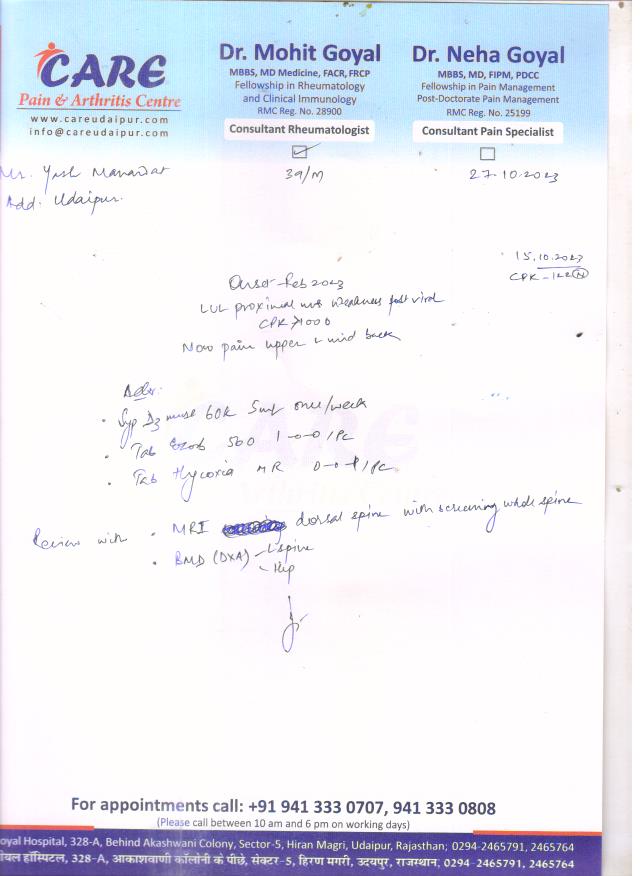 CARE
Pain & Arthritis Centre
www.careudaipur.com
info@careudaipur.com
Dr. Mohit Goyal
MBBS, MD Medicine, FACR, FRCP
Fellowship in Rheumatology
and Clinical Immunology
RMC Reg. No. 28900
Consultant Rheumatologist
Dr. Neha Goyal
MBBS, MD, FIPM, PDCC
Fellowship in Pain Management
Post-Doctorate Pain Management
RMC Reg. No. 25199
Consultant Pain Specialist
Mr. Yash
39/M
27.10.2023
Add. Udaipur.
15.10.2023
CPK - 122 (N)
Onset - Feb 2023
proximal weakness post viral
CPK >1000
Now pain upper & mid back
Adv.
Syp D3 must 60K 5ml once/week
Tab 500 1-0-0/PC
Tab Hycoxia MR 0-0-1/PC
Review with • MRI dorsal spine with screening whole spine
• BMD (DXA) - L spine
- Hip
For appointments call: +91 941 333 0707, 941 333 0808
(Please call between 10 am and 6 pm on working days)
oyal Hospital, 328-A, Behind Akashwani Colony, Sector-5, Hiran Magri, Udaipur, Rajasthan; 0294-2465791, 2465764
ोयल हॉस्पिटल, 328-A, आकाशवाणी कॉलोनी के पीछे, सेक्टर-5, हिरण मगरी, उदयपुर, राजस्थान; 0294-2465791, 2465764